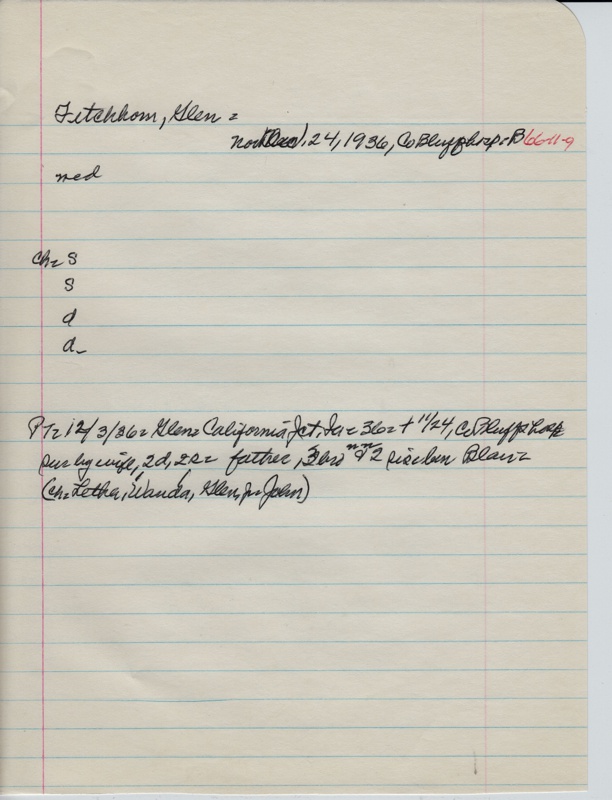 Fitchhorn, Glen =
Nov 24, 1936, Co Bluffs hosp. B66-11-9
med
ch= s
s
d
d-
PT= 12/3/36= Glen= California Jct, Ia= 36= + 11/24, Co Bluffs hosp
sur by wife, 2d, 2s= father, 3 bro 2 sis Blair=
(ch= Letha, Wanda, Glen, jr John)